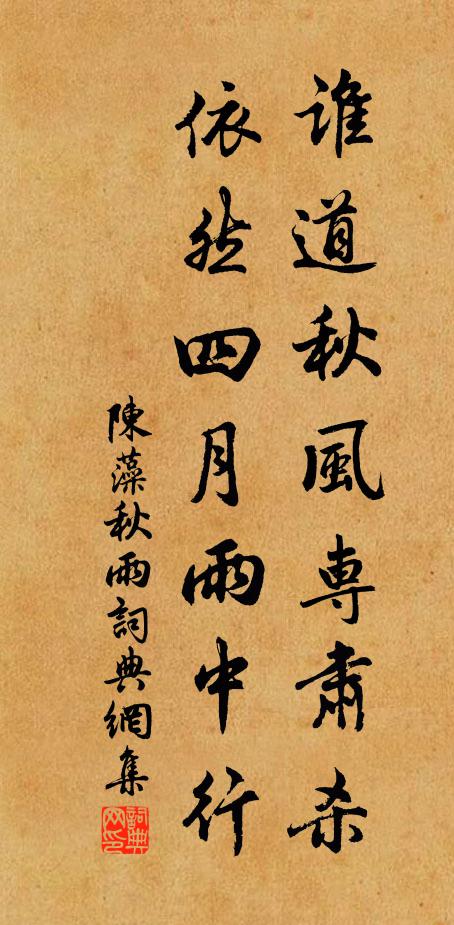 誰道秋風専肅杀
依然四月雨中行
陳藻秋雨詞典網集
詞典网印